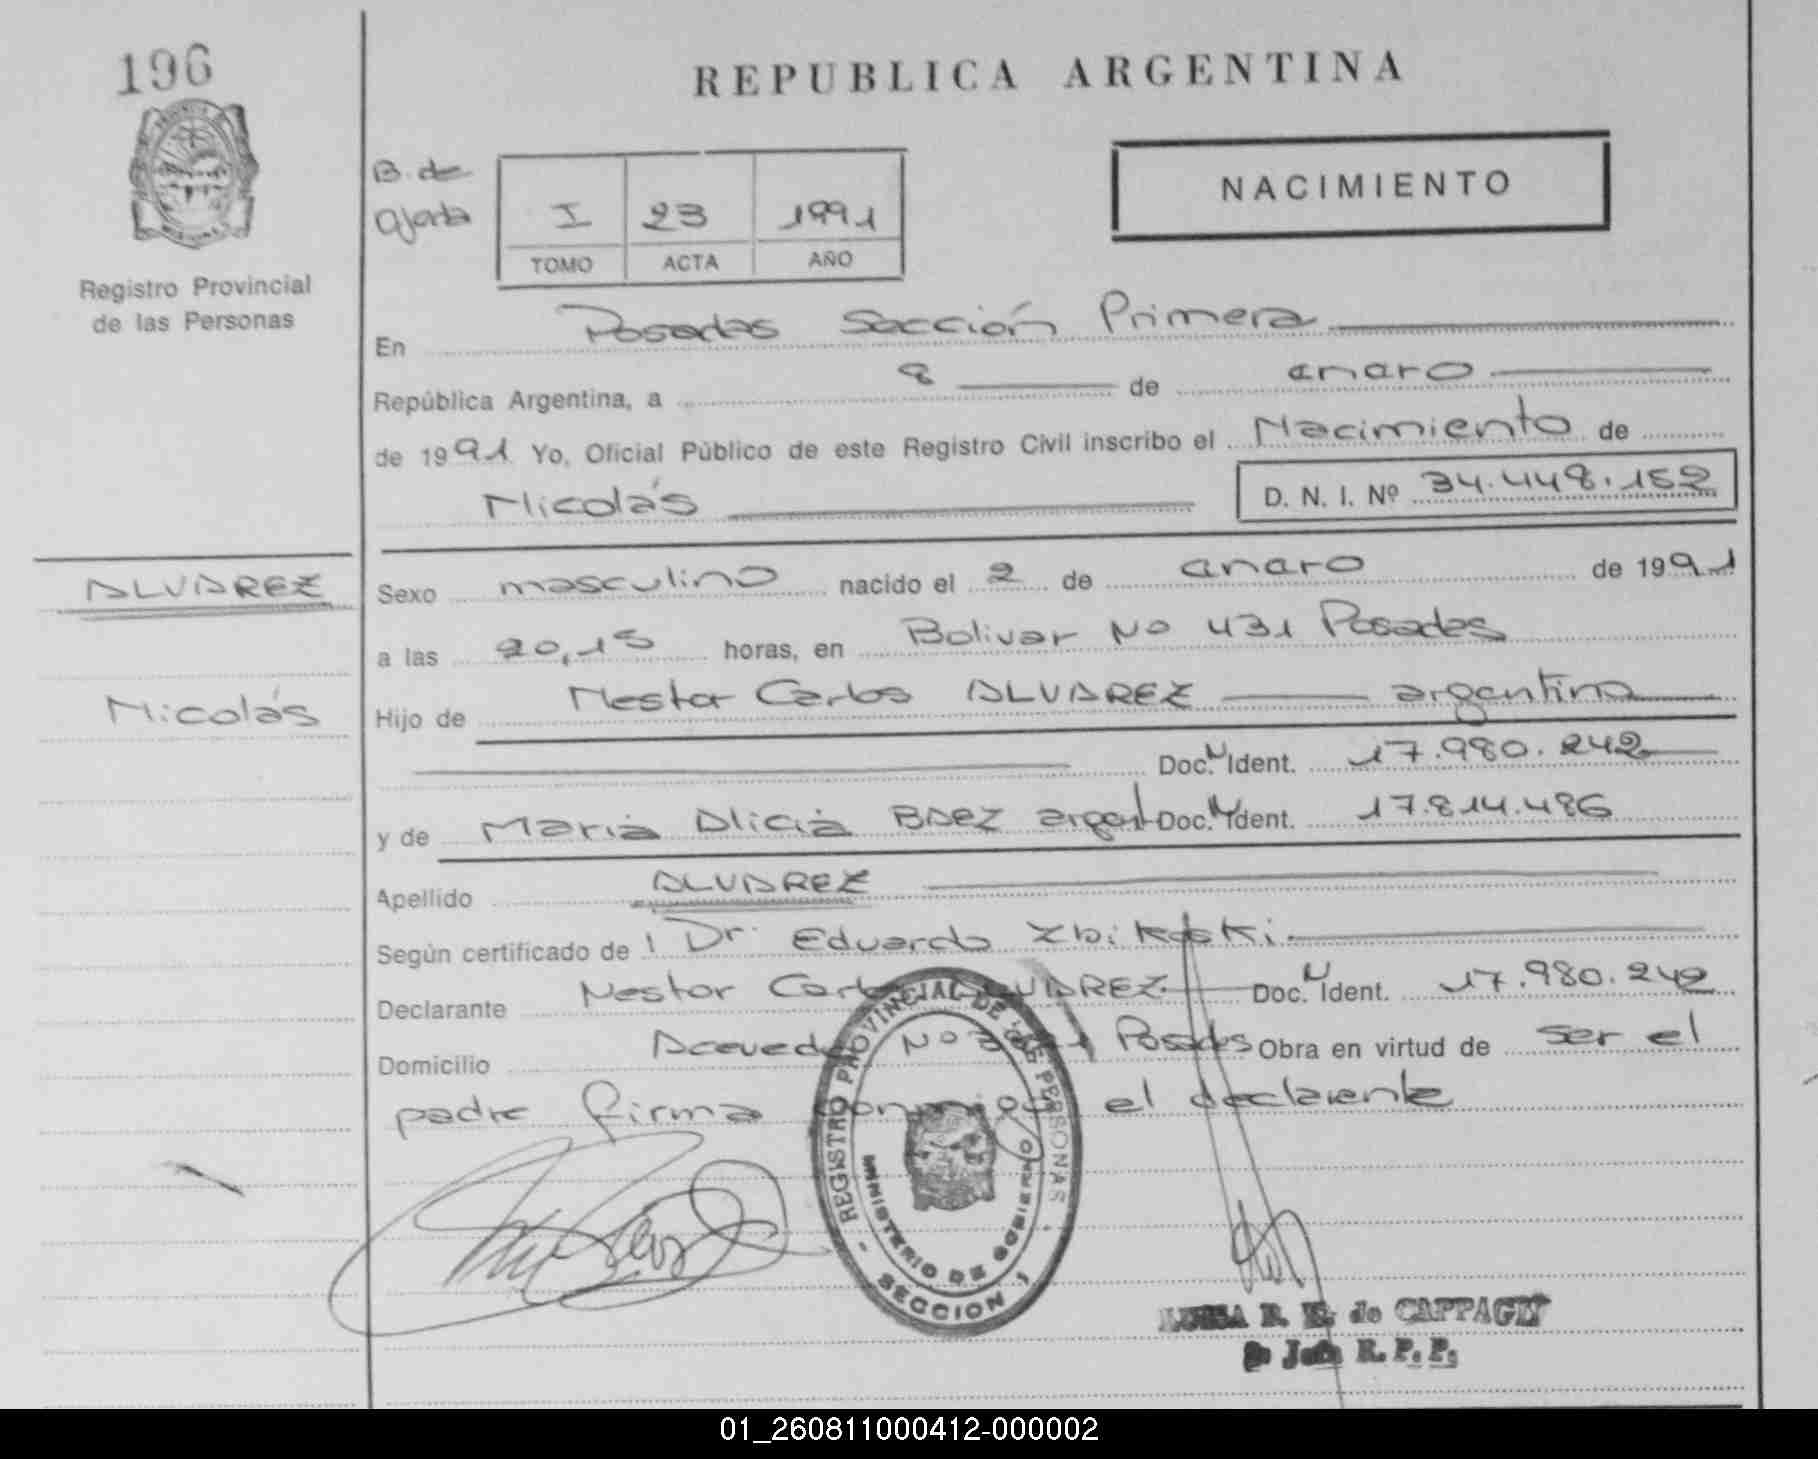 196
REPUBLICA ARGENTINA
B. de
I 23 1991
TOMO ACTA AÑO
NACIMIENTO
Registro Provincial
de las Personas
En Posadas Sección Primera
República Argentina, a 8 de enero
de 1991 Yo, Oficial Público de este Registro Civil inscribo el Nacimiento de
Nicolás D. N. I. Nº 34.448.152
ALVAREZ
Sexo masculino nacido el 2 de enero de 1991
a las 20,15 horas, en Bolivar No 431 Posadas
Nicolás
Hijo de Nestor Carlos ALVAREZ argentino
Doc. N Ident. 17.980.242
y de Maria Alicia BAEZ argent Doc. N Ident. 17.814.486
Apellido ALVAREZ
Según certificado de Dr. Eduardo
Declarante Nestor Carlos ALVAREZ Doc. N Ident. 17.980.242
Domicilio Acevedo No Posadas Obra en virtud de ser el
padre firma conmigo el declarante
REGISTRO PROVINCIAL DE LAS PERSONAS
MINISTERIO DE GOBIERNO
SECCION 1
LUISA R. de
Jefe R. P. P.
01_260811000412-000002